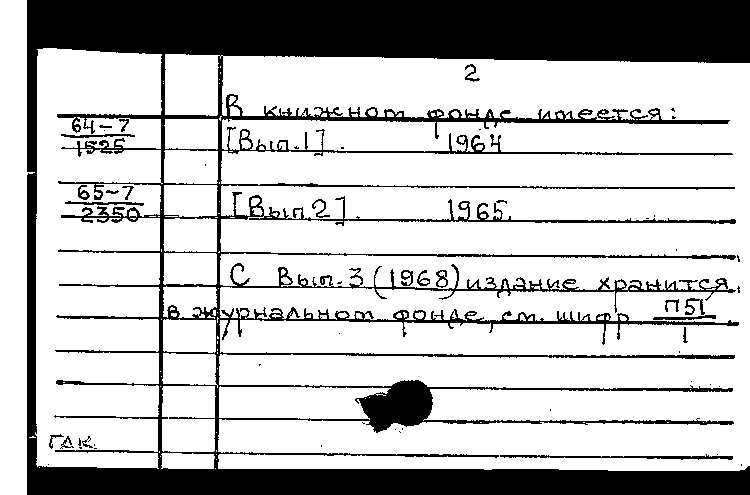 2
В книжном фонде имеется:
64-7
1525
[Вып.1]. 1964
65-7
2350
[Вып.2]. 1965.
С Вып.3 (1968) издание хранится
в журнальном фонде, см. шифр П51
1
ГАК